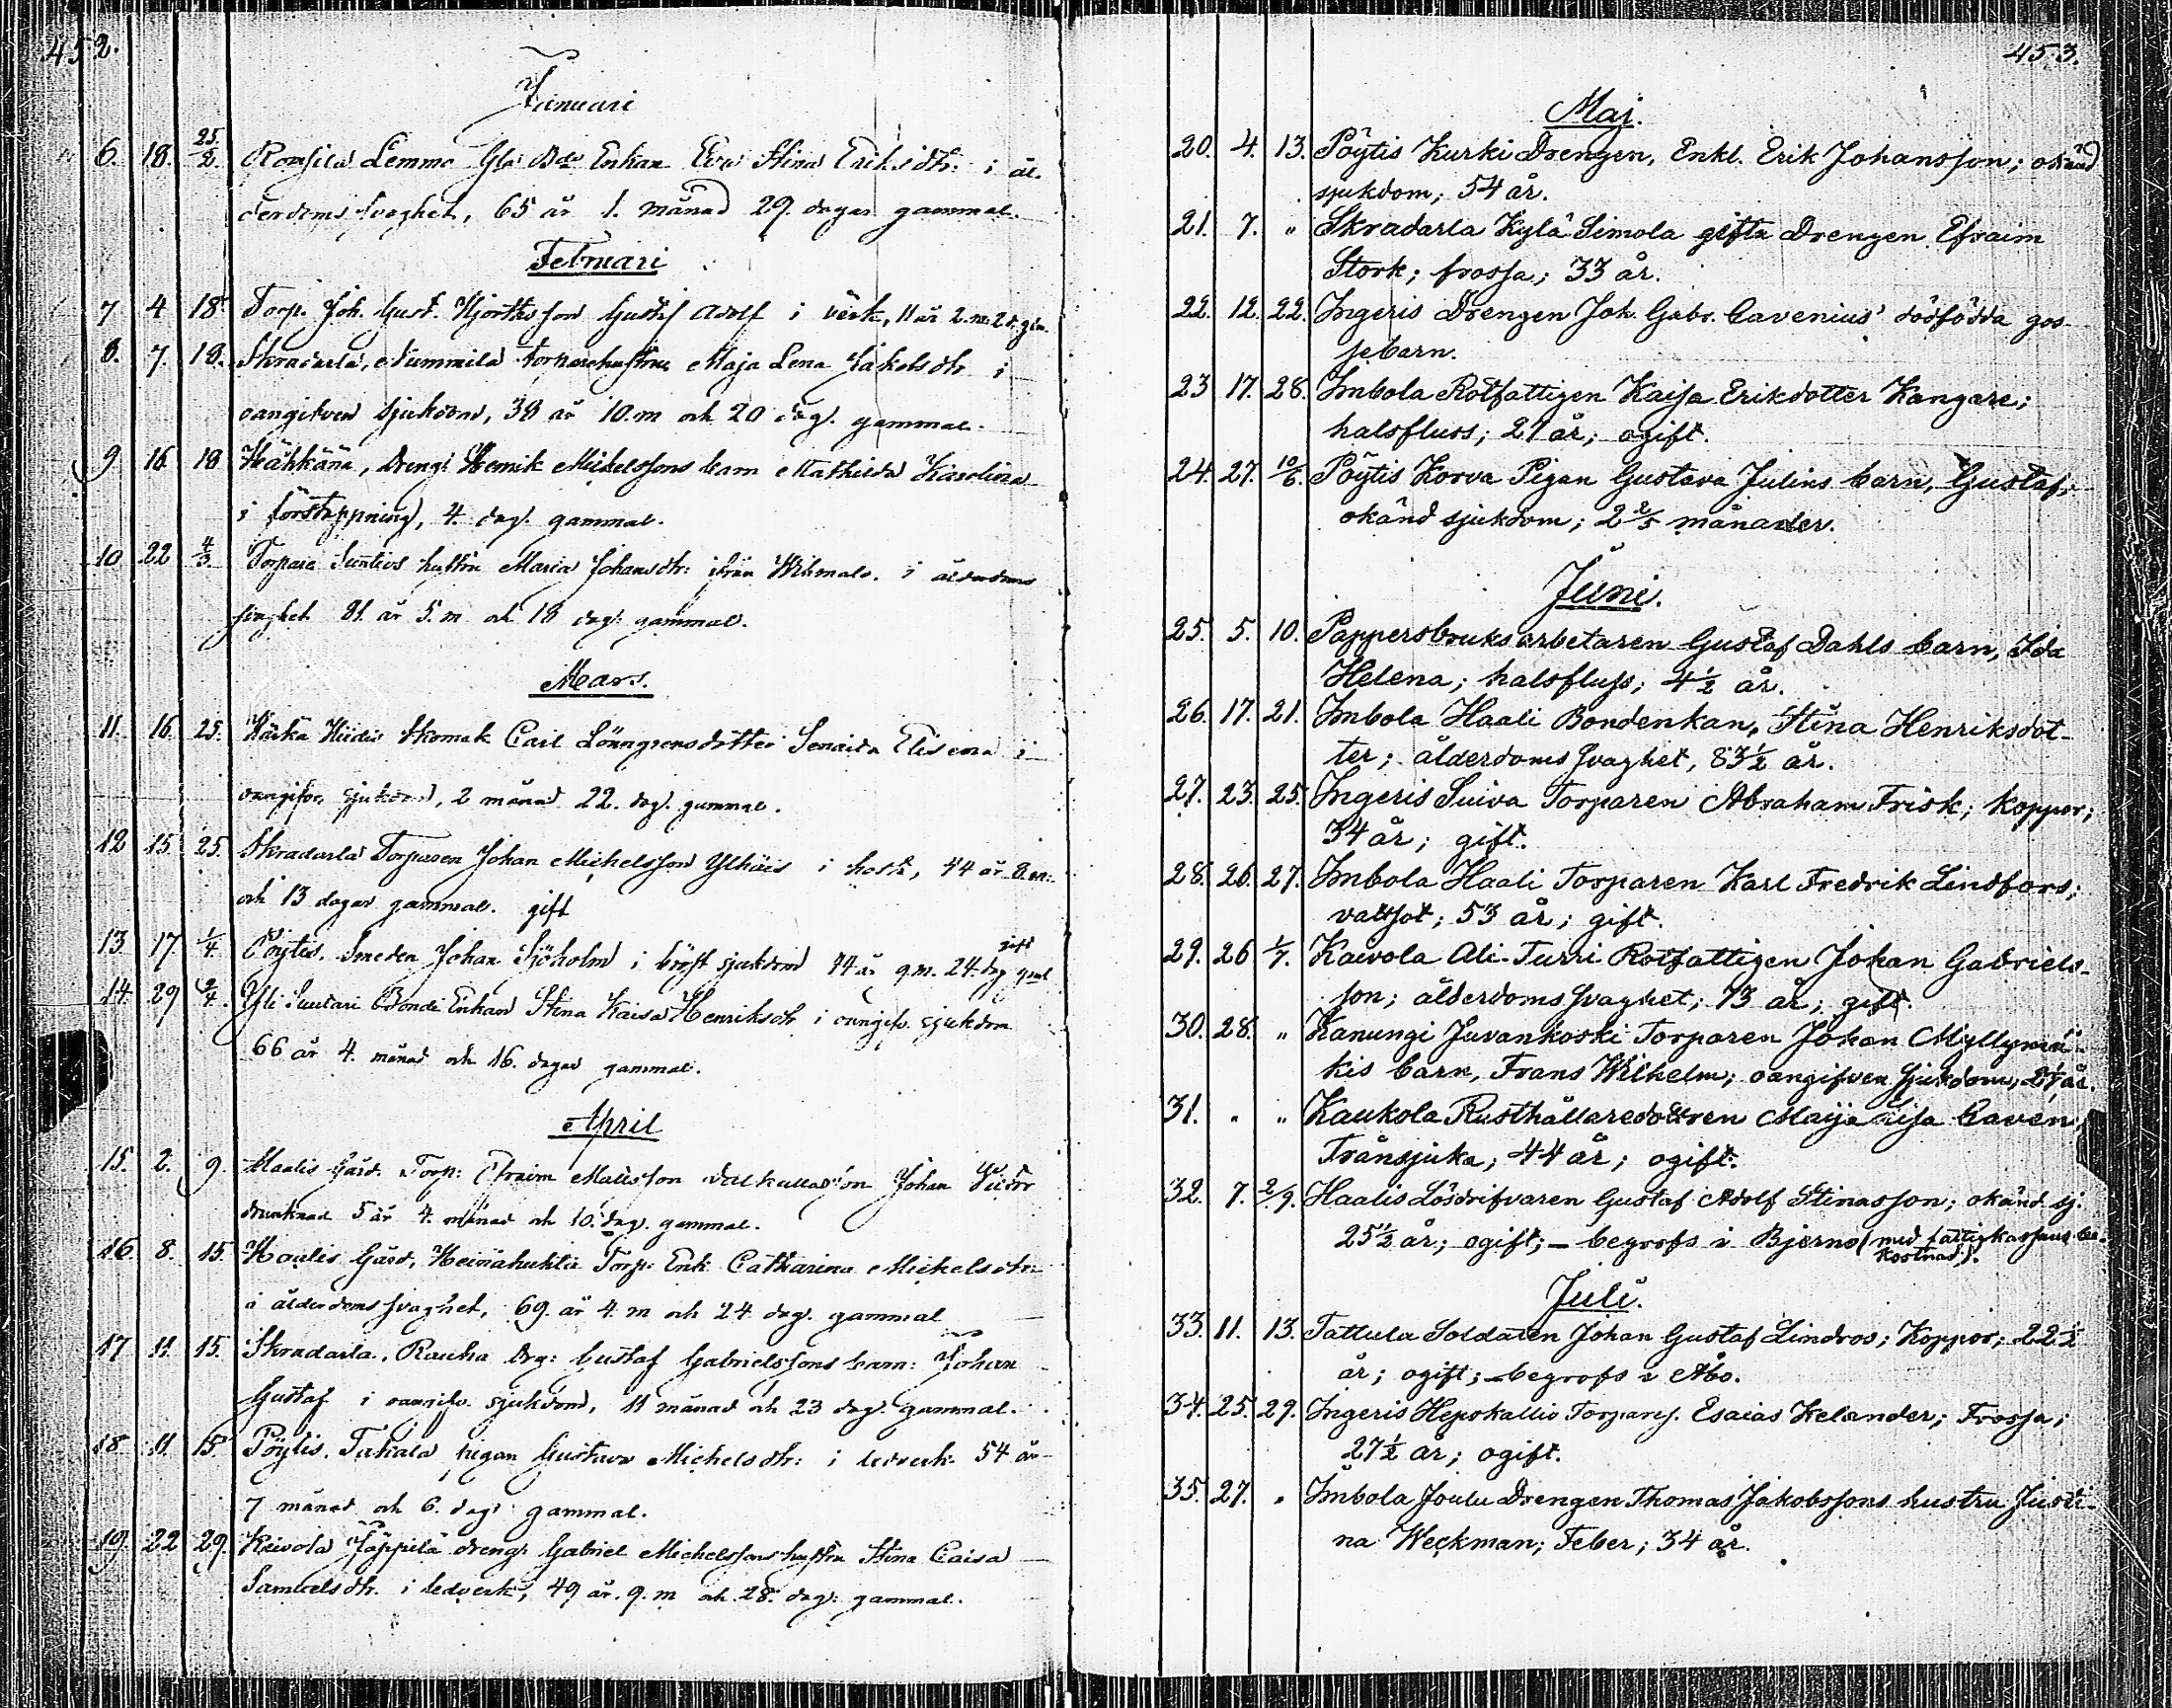 452.
Januari
6. 18. 25/2 Romsila Lemmo Gla Bde Enkan Eva Stina Eriksdtr: i ål-
derdoms svaghet, 65 år 1. månad 29. dagar gammal.
Februari
7 4 18 Torp. Joh. Gust. Hjortsson Gustaf Adolf i värk, 11 år 2. m. 2 d. gln.
8. 7. 18. Skradarla, Nummila torparehustru Maja Lena Jakobsdtr i
oangifven sjukdom, 38 år 10. m och 20 dag. gammal.
9 16 18 Kähkänä, Dreng: Henrik Michelssons barn Mathilda Karolina
i förstoppning, 4. dag. gammal.
10 22 4/3. Torpare Suntios hustru Maria Johansdtr: ifrån Wihmalo. i ålderdoms
svaghet 81. år 5. m och 18 dag: gammal.
Mars.
11. 16. 25. Skomak Carl Lönngrens dotter Senaida Elisena i
oangifve sjukdom, 2 månad 22. dag. gammal.
12 15. 25. Skradarla Torparen Johan Michelsson Ylhäis i host, 44 år 8. m:
och 13 dagar gammal. gift
13 17. 1/4. Pöytis. Smeden Johan Sjöholm i bröst sjukdom 44 år 9. m. 24. dag gml gift
14. 29 2/4. Yli Suutari Bonde Enkan Stina Kaisa Henriksdtr i oangifv. sjukdom
66 år 4. månad och 16. dagar gammal.
April
15. 2. 9. Haalis Gård. Torp: Efraim Matisson Valkallas son Johan Victor
drunknad 5 år 4. månad och 10. dag. gammal.
16. 8. 15. Haalis Gård, Heinähuhta Torp: Enk. Catharina Michelsdtr:
i ålderdoms svaghet, 69. år 4. m och 24 dag. gammal
17 11. 15. Skradarla. Rauha Drg: Gustaf Gabrielssons barn: Johan
Gustaf i oangifv. sjukdom, 11 månad och 23 dag. gammal.
18 11. 15. Pöytis. Takala pigan Gustava Michelsdtr: i ledverk 54 år
7 månad och 6. dag: gammal.
19. 22 29. Keivola Jäppilä dreng: Gabriel Michelssons hustru Stina Caisa
Samuelsdtr. i ledverk, 49 år. 9. m och 28. dag: gammal.
453.
Maj.
20. 4. 13. Pöytis Kurki Drengen, Enkl. Erik Johansson; okänd
sjukdom; 54 år.
21. 7. " Skradarla Kylä Simola gifta Drengen Efraim
Stork; frossa; 33 år.
22. 12. 22. Ingeris Drengen Joh. Gabr. Cavenius' dödfödda gos-
sebarn.
23 17. 28. Imbola Rotfattigen Kaisa Eriksdotter Kangare;
halsfluss; 27 år; ogift.
24. 27. 10/6. Pöytis Korva Pigan Gustava Julins barn, Gustaf;
okänd sjukdom; 2 2/5 månader.
Juni.
25. 5. 10. Pappersbruksarbetaren Gustaf Dahls barn, Ida
Helena; halsfluss; 4 1/2 år.
26. 17. 21. Imbola Haali Bondenkan, Stina Henriksdot-
ter; ålderdoms svaghet, 83 1/2 år.
27. 23. 25. Ingeris Suiva Torparen Abraham Frisk; Koppor;
34 år; gift.
28. 26. 27. Imbola Haali Torparen Karl Fredrik Lindfors;
vattsot; 53 år; gift.
29. 26 1/7. Kaivola Ali-Turri Rotfattigen Johan Gabriels-
son; ålderdoms svaghet; 73 år; gift.
30. 28. " Kanungi Juvankoski Torparen Johan Myllymä-
kis barn, Frans Wilhelm; oangifven sjukdom; år.
31. " " Kaukola Rusthållaredottren Maija Lisa Cavén;
Trånsjuka; 44 år; ogift.
32. 7. 2/9. Haalis Lösdrifvaren Gustaf Adolf Stinasson; okänd sj.
25 1/2 år; ogift; – begrofs i Bjerno (med fattigkassans be-
kostnad).
Juli.
33. 11. 13. Tattula Soldaten Johan Gustaf Lindros; Koppor; 22 1/2
år; ogift; – begrofs i Åbo.
34. 25. 29. Ingeris Hepokallio Torpares. Esaias Kelander; Frossa;
27 1/2 år; ogift.
35. 27. " Imbola Joulu Drengen Thomas Jakobssons hustru Justi-
na Weckman; Feber; 34 år.